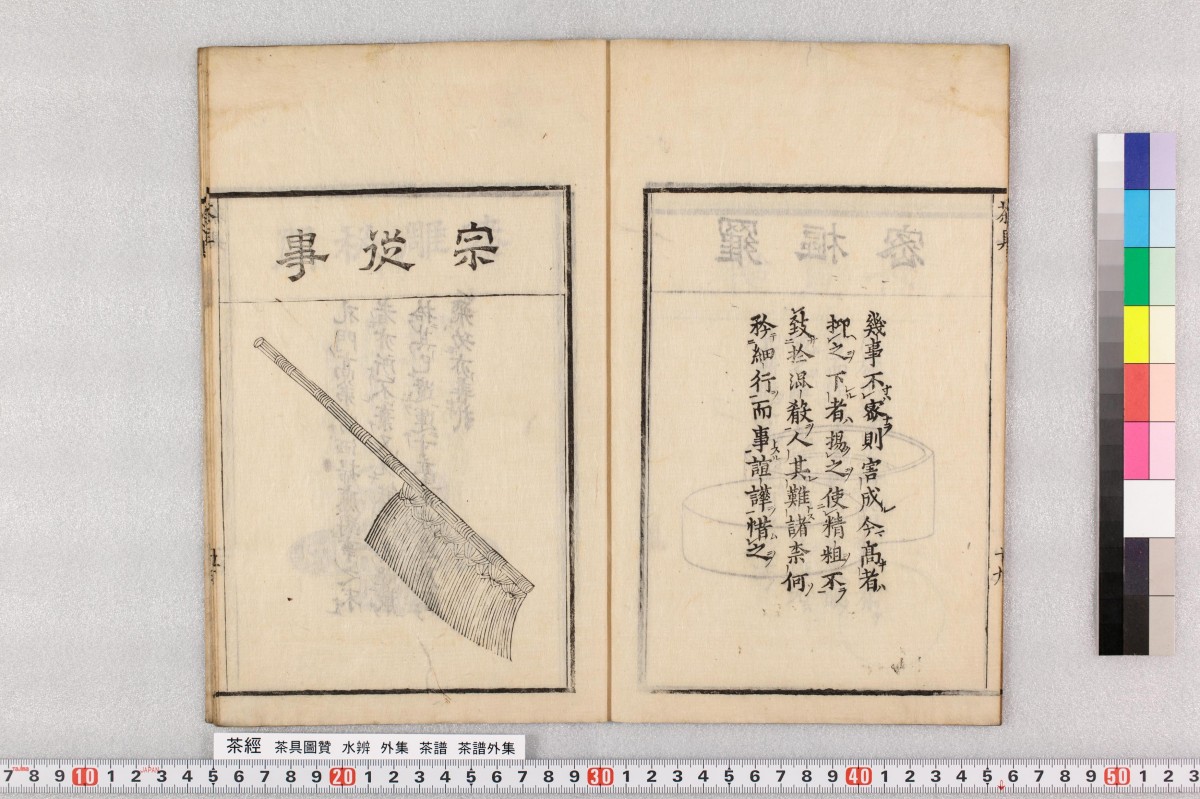 幾事不密則害成今髙者
抑之下者揚之使精粗不
致扵混殽人其難諸柰何
矜細行而事諠譁惜之
宗從事
茶經 茶具圖贊 水辨 外集 茶譜 茶譜外集
7 8 9 10 1 2 3 4 5 6 7 8 9 20 1 2 3 4 5 6 7 8 9 30 1 2 3 4 5 6 7 8 9 40 1 2 3 4 5 6 7 8 9 50 1 2 3
JAPAN